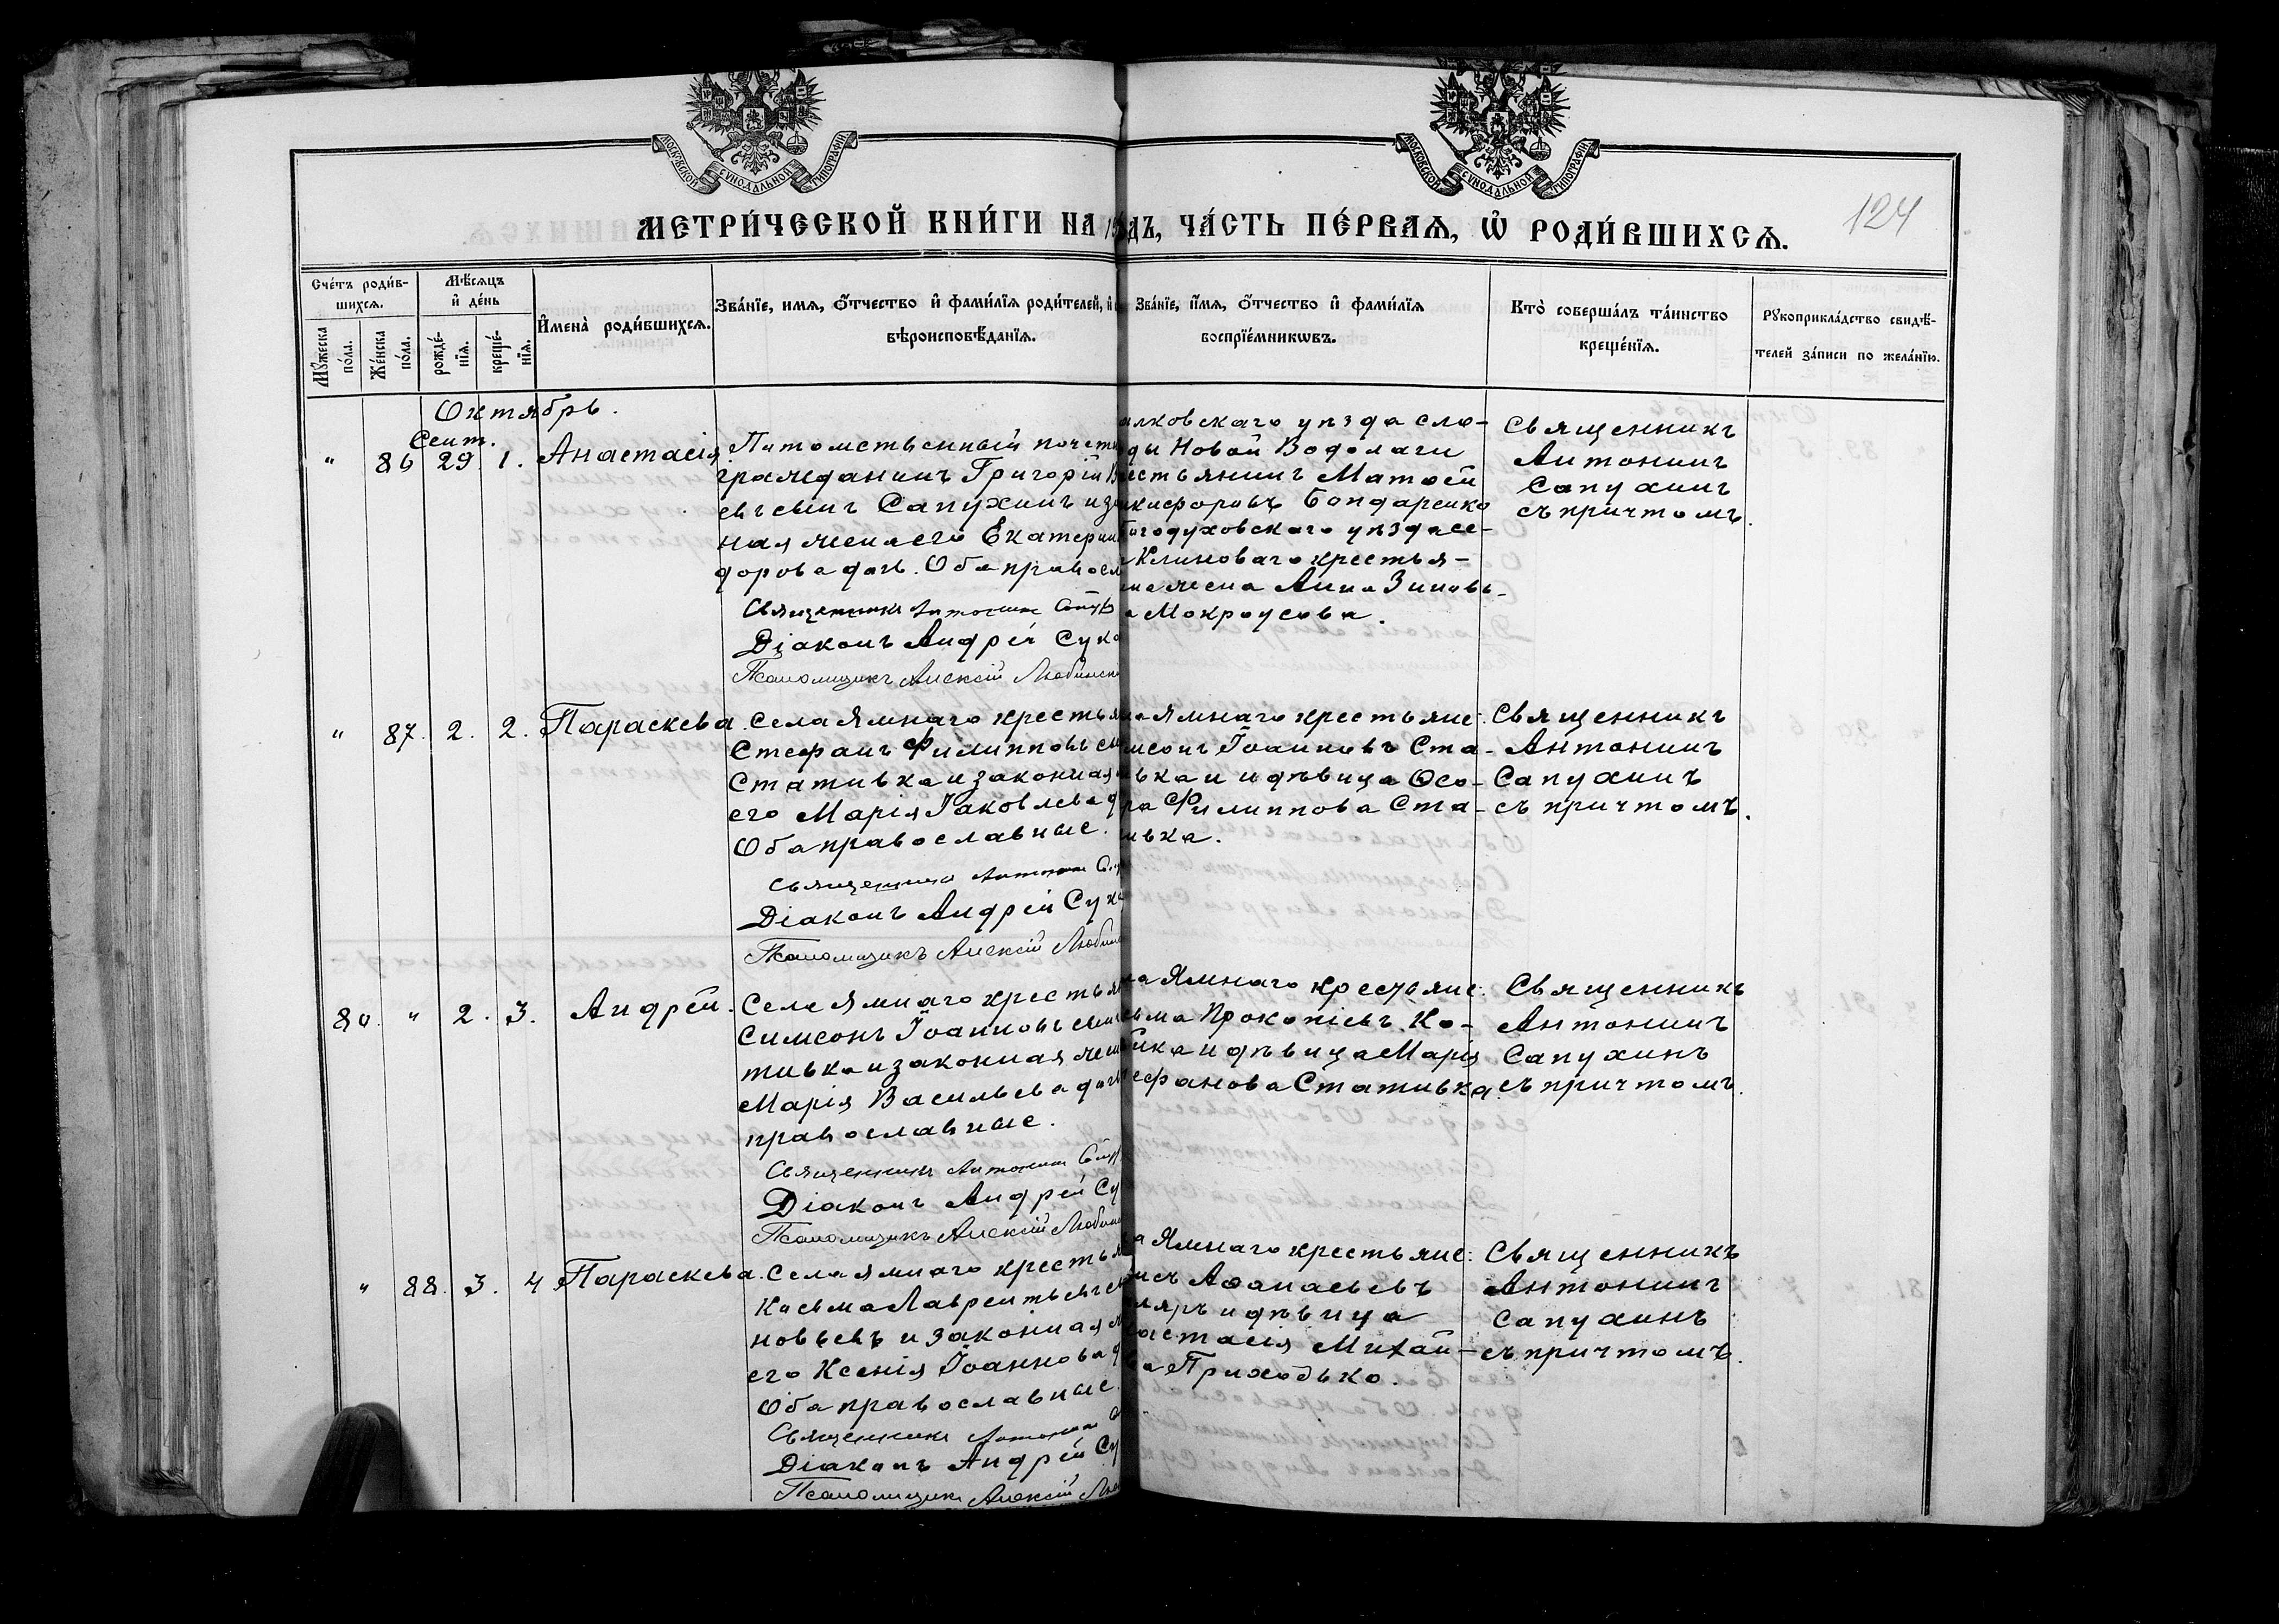 МОСКОВСКОЙ СѴНОДАЛЬНОЙ ТИПОГРАФИИ
МОСКОВСКОЙ СѴНОДАЛЬНОЙ ТИПОГРАФИИ
124
МЕТРИ́ЧЕСКОЙ КНИ́ГИ НА
ДЪ, ЧА́СТЬ ПЕ́РВАѦ, Ѡ҆ РОДИ́ВШИХСѦ.
Сче́тъ роди́в-
шихсѧ.
Мꙋ́жеска по́ла.
Же́нска по́ла.
Мѣ́сѧцъ
и҆ де́нь
рожде́-
нїѧ.
креще́-
нїѧ.
И҆мена̀ роди́вшихсѧ.
Зва́нїе, имѧ, о҆́тчество и҆ фами́лїѧ роди́телей, и҆
вѣроисповѣ́данїѧ.
Зва́нїе, и҆́мѧ, о҆́тчество и҆ фами́лїѧ
воспрїе́мникѡвъ.
Кто̀ соверша́лъ та́инство
креще́нїѧ.
Рꙋкоприкла́дство свидѣ́-
телей за́писи по жела́нїю.
Октябрь.
Сент.
" 86 29. 1. Анастасія
Потомственный почетн
гражданинъ Григорій В
евъ сынъ Сапухинъ и за
ная жена его Екатерин
дорова дочь. Оба правосл
Священникъ Антонинъ Сапух
Діаконъ Андрей Сука
Псаломщикъ Алексій Любинск
алковскаго уѣзда сло-
ды Новой Водолаги
естьянинъ Матѳей
икифоровъ Бондаренко
Богодуховскаго уѣзда се-
а Клиноваго крестья-
на жена Анна Зиновь-
а Мокроусова.
Священникъ
Антонинъ
Сапухинъ
съ причтомъ.
" 87. 2. 2. Параскева.
Села Ямнаго крестья
Стефанъ Филипповъ сы
Стативка и законная
его Марія Іаковлева д
Оба православные.
Священникъ Антонинъ Сап
Діаконъ Андрей Сук
Псаломщикъ Алексій Любин
ла Ямнаго крестьяне:
имеонъ Іоанновъ Ста-
ивка и дѣвица Ѳео-
ра Филиппова Ста-
ивка.
Священникъ
Антонинъ
Сапухинъ
съ причтомъ.
80. " 2. 3. Андрей.
Села Ямнаго крестьян
Симеонъ Іоанновъ сынъ
тивка и законная жен
Марія Васильева дочь
православные.
Священникъ Антонинъ Сапу
Діаконъ Андрей Су
Псаломщикъ Алексій Любин
ла Ямнаго крестьяне:
сьма Прокопіевъ Ко-
ика и дѣвица Марія
тефанова Стативка.
Священникъ
Антонинъ
Сапухинъ
съ причтомъ.
" 88. 3. 4 Параскева.
Села Ямнаго крестья
Косьма Лаврентьевъ
новьевъ и законная
его Ксенія Іоаннова д
Оба православные.
Священникъ Антонинъ
Діаконъ Андрей Су
Псаломщикъ Алексій Лю
ла Ямнаго крестьяне:
Аѳанасьевъ
ляръ и дѣвица
настасія Михай-
ва Приходько.
Священникъ
Антонинъ
Сапухинъ
съ причтомъ.